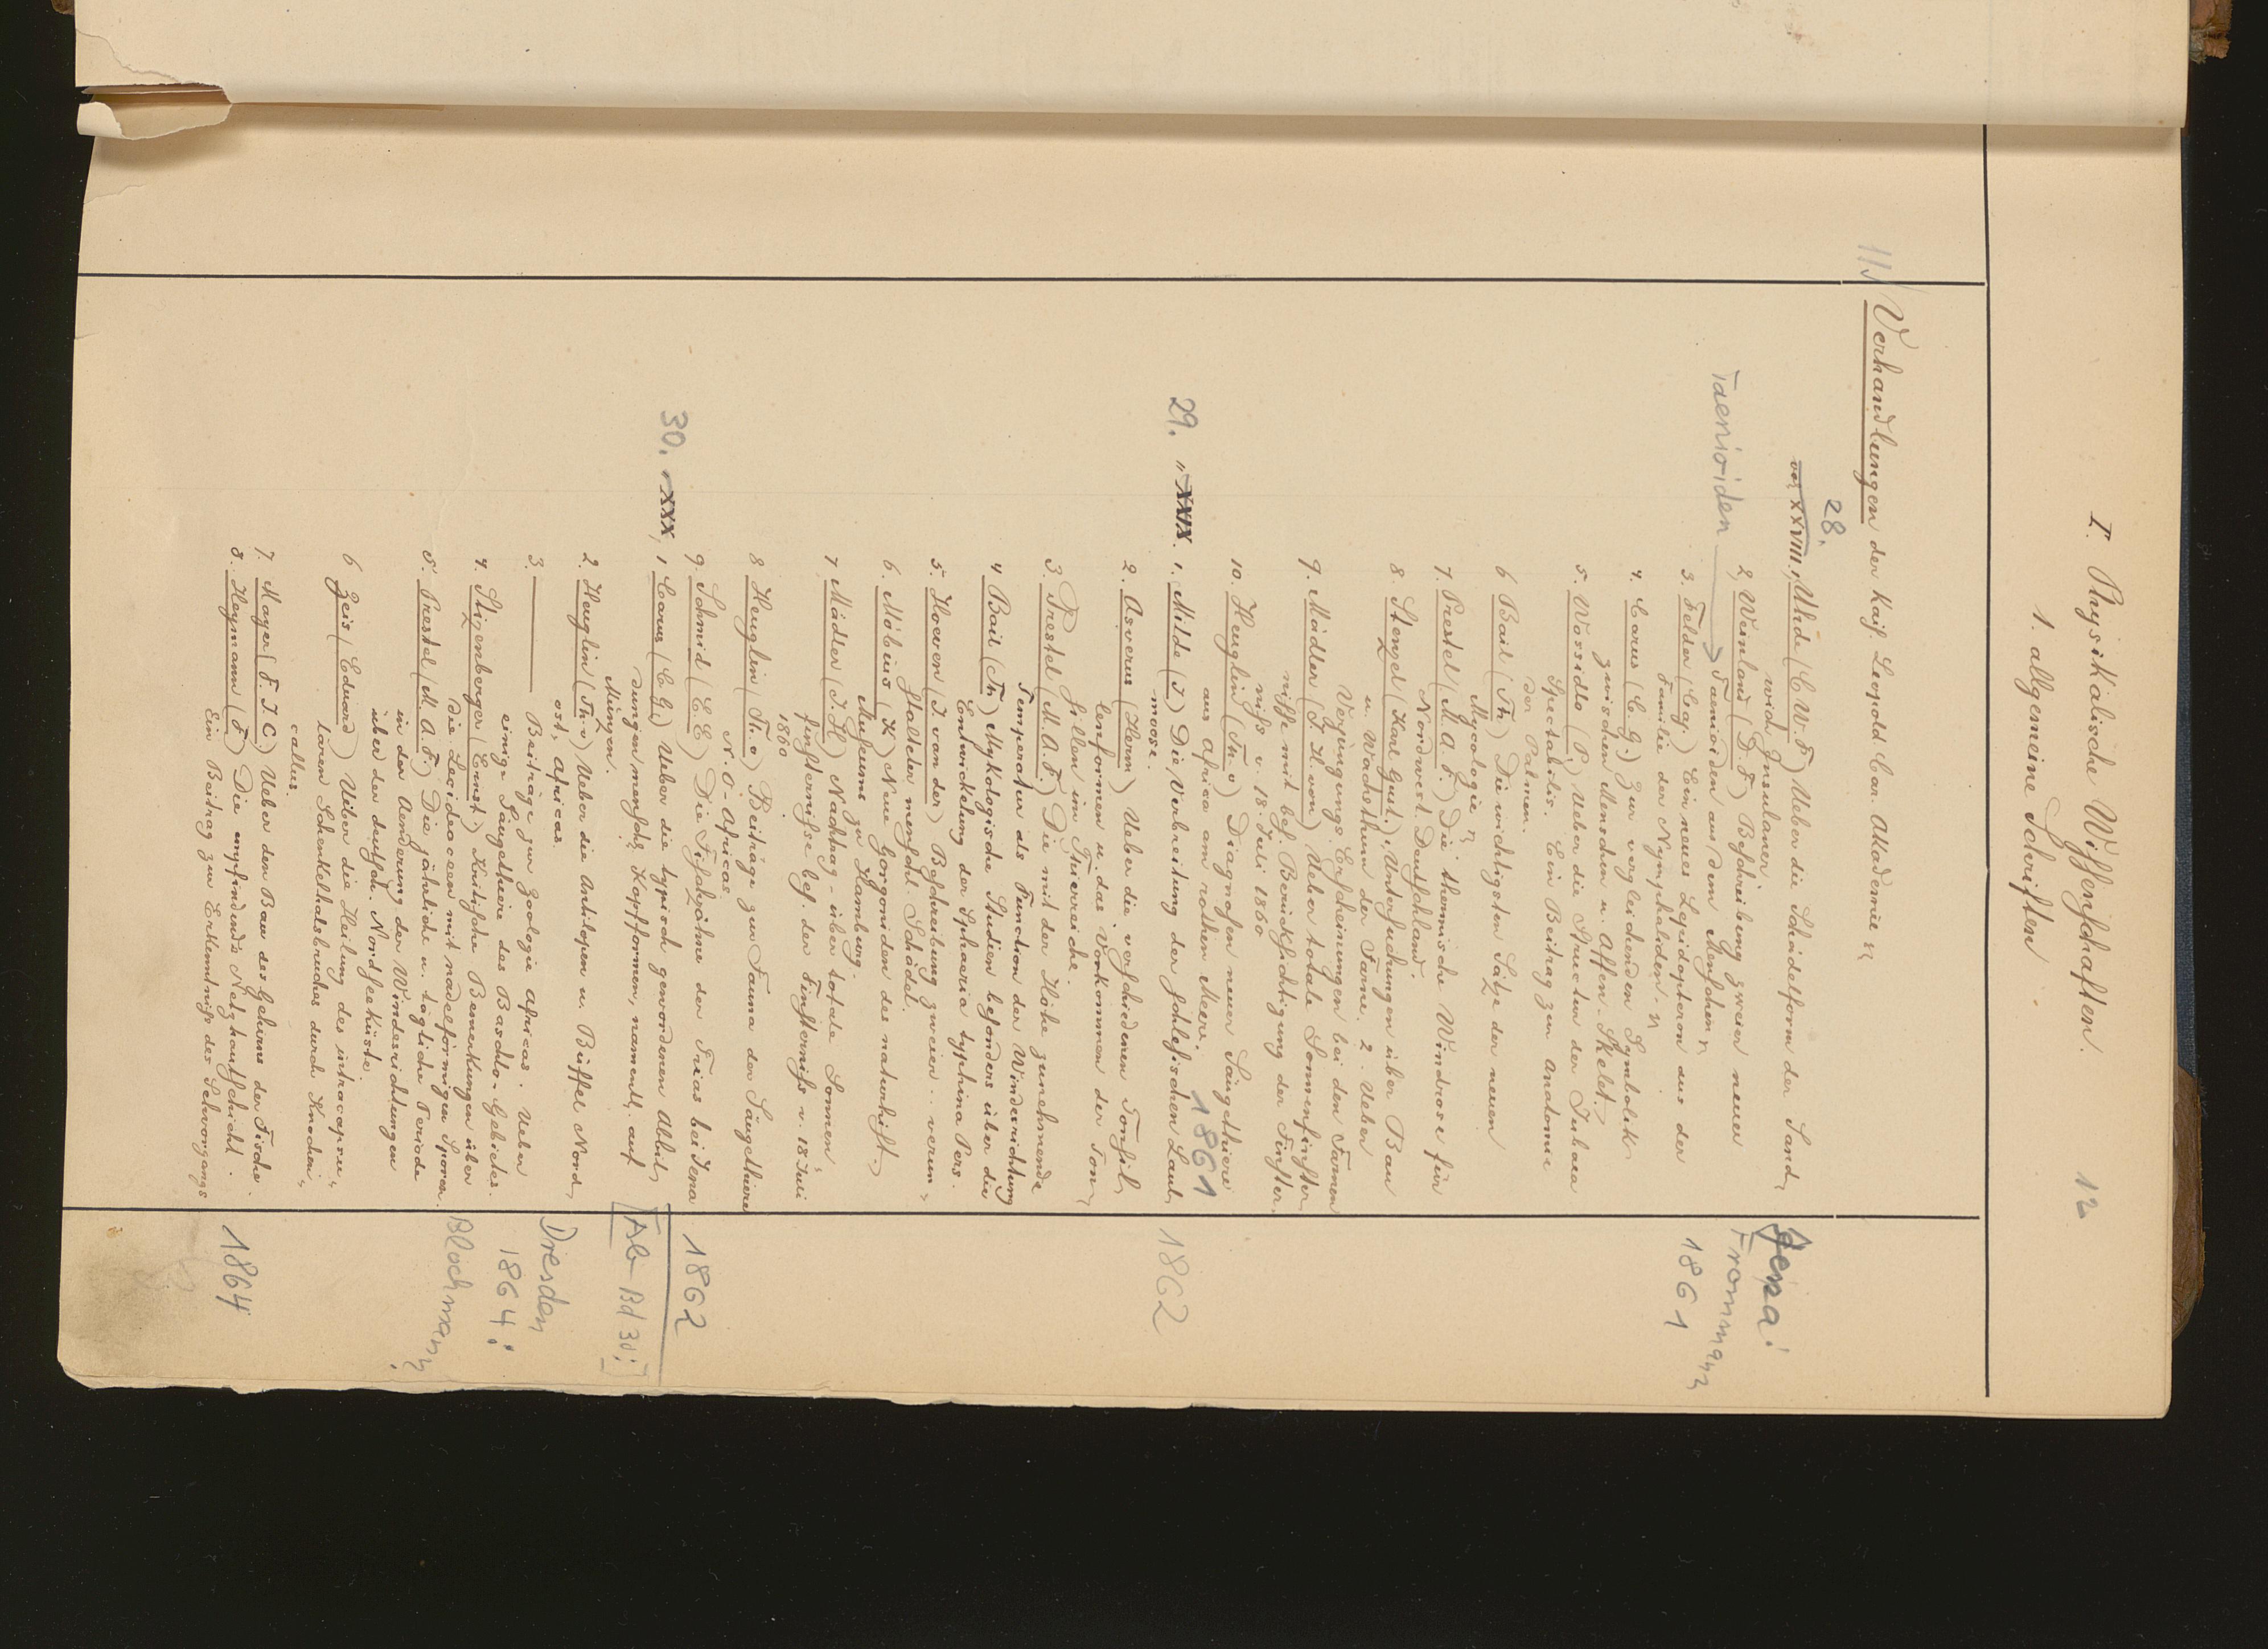 I. Physikalische Wissenschaften. 12
1. allgemeine Schriften
11) Verhandlungen der Kais. Leopold. Car. Akademie
28.
XXVIII. 1, Uhde (C. W. F.) Ueber die Schädelform der Sand
wich Insulaner
Jena:
2, Weinland (D. F.) Beschreibung zweier neuer
Frommann
Taenioiden
Taenioiden aus dem Menschen
1861
3. Felder (Caj.) Ein neues Lepidopteron aus der
Familie der Nymphaliden.
4. Carus (C. G.) Zur vergleichenden Symbolik
zwischen Menschen u. Affen-Skelet.
5. Wossidlo (P.) Ueber die Structur der Jubaea
Spectabilis. Ein Beitrag zur Anatomie
der Palmen.
6 Bail (Th.) Die wichtigsten Sätze der neuern
Mycologie
7. Prestel (M. A. F.) Die thermische Windrose für
Nordwest-Deutschland.
8. Stenzel (Karl Gust.) 1, Untersuchungen über Bau
u. Wachsthum der Farne. 2. Ueber
Verjüngungs Erscheinungen bei den Farnen
9. Mädler (J. H. von) Ueber totale Sonnenfinster
nisse mit bes. Berücksichtigung der Finster
niss v. 18. Juli 1860
10. Heuglin (Th. v) Diagnosen neuer Säugethiere
aus Africa am rothen Meere.
1861
29. " XXIX. 1. Milde (J.) Die Verbreitung der schlesischen Laub
moose.
1862
2. Asverus (Herm) Ueber die verschiedenen Tonsil
lenformen u. das Vorkommen der Ton
sillen im Thierreiche.
3. Prestel (M. A. F.) Die mit der Höhe zunehmende
Temperatur als Function der Windrichtung
4 Bail (Th) Mykologische Studien besonders über die
Entwickelung der Sphaeria typhina Pers.
5. Hoeven (J. van der) Beschreibung zweier .. verun"
stalteter menschl. Schädel.
6. Möbius (K) Neue Gorgoniden des naturhist
Museums zu Hamburg.
7. Mädler (J. H) Nachtrag - über totale Sonnen
finsternisse bes. der Finsterniss v. 18 Juli
1860.
8 Heuglin (Th. v) Beiträge zur Fauna der Säugethiere
N. O-Africas
9. Schmid (E. E) Die Fischzähne der Trias bei Jena
1862
30. " XXX, 1 Carus (C. G.) Ueber die typisch gewordenen Abbil
dungen menschl. Kopfformen, namentl. auf
Münzen.
[Ab Bd 30:]
2. Heuglin (Th. v) Ueber die Antilopen u. Büffel Nord
ost, Africas.
Dresden
3. ——— Beiträge zur Zoologie Africas. Ueber
einige Säugethiere des Baschlo-Gebietes.
1864:
4. Stizenberger (Ernst) Kritische Bemerkungen über
die Lecideaceen mit nadelförmigen Sporen.
Blochmann
5. Prestel (M. A. F.) Die jährliche u. tägliche Periode
in der Aenderung der Windesrichtungen
über der deutsch. Nordseeküste.
6 Zeis (Eduard) Ueber die Heilung des intracapsu"
laren Schenkelhalsbruches durch Knochen"
callus.
7. Mayer (F. J. C.) Ueber den Bau des Gehirns der Fische.
8. Heymann (F.) Die empfindende Netzhautschicht.
Ein Beitrag zur Erkenntniss des Sehvorgangs
1864